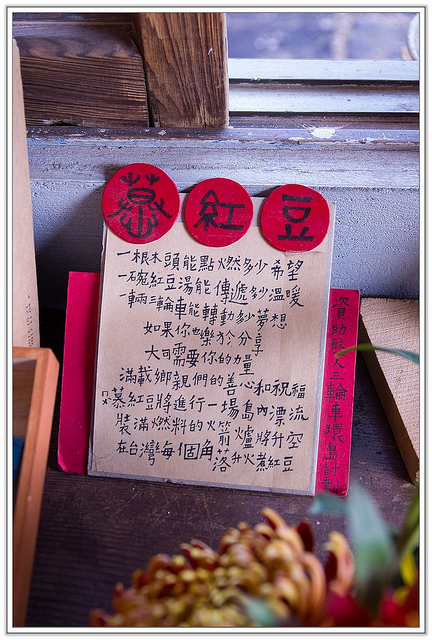 慕紅豆
一根木頭能點燃多少希望
一碗紅豆湯能傳遞多少溫暖
一輛三輪車能轉動多少夢想
如果你也樂於分享
大司需要你的力量
滿載鄉親們的善心和祝福
慕紅豆將進行一場島內漂流
裝滿燃料的火箭爐將升空
在台灣每個角落升火煮紅豆
資助散人三輪車環島計劃